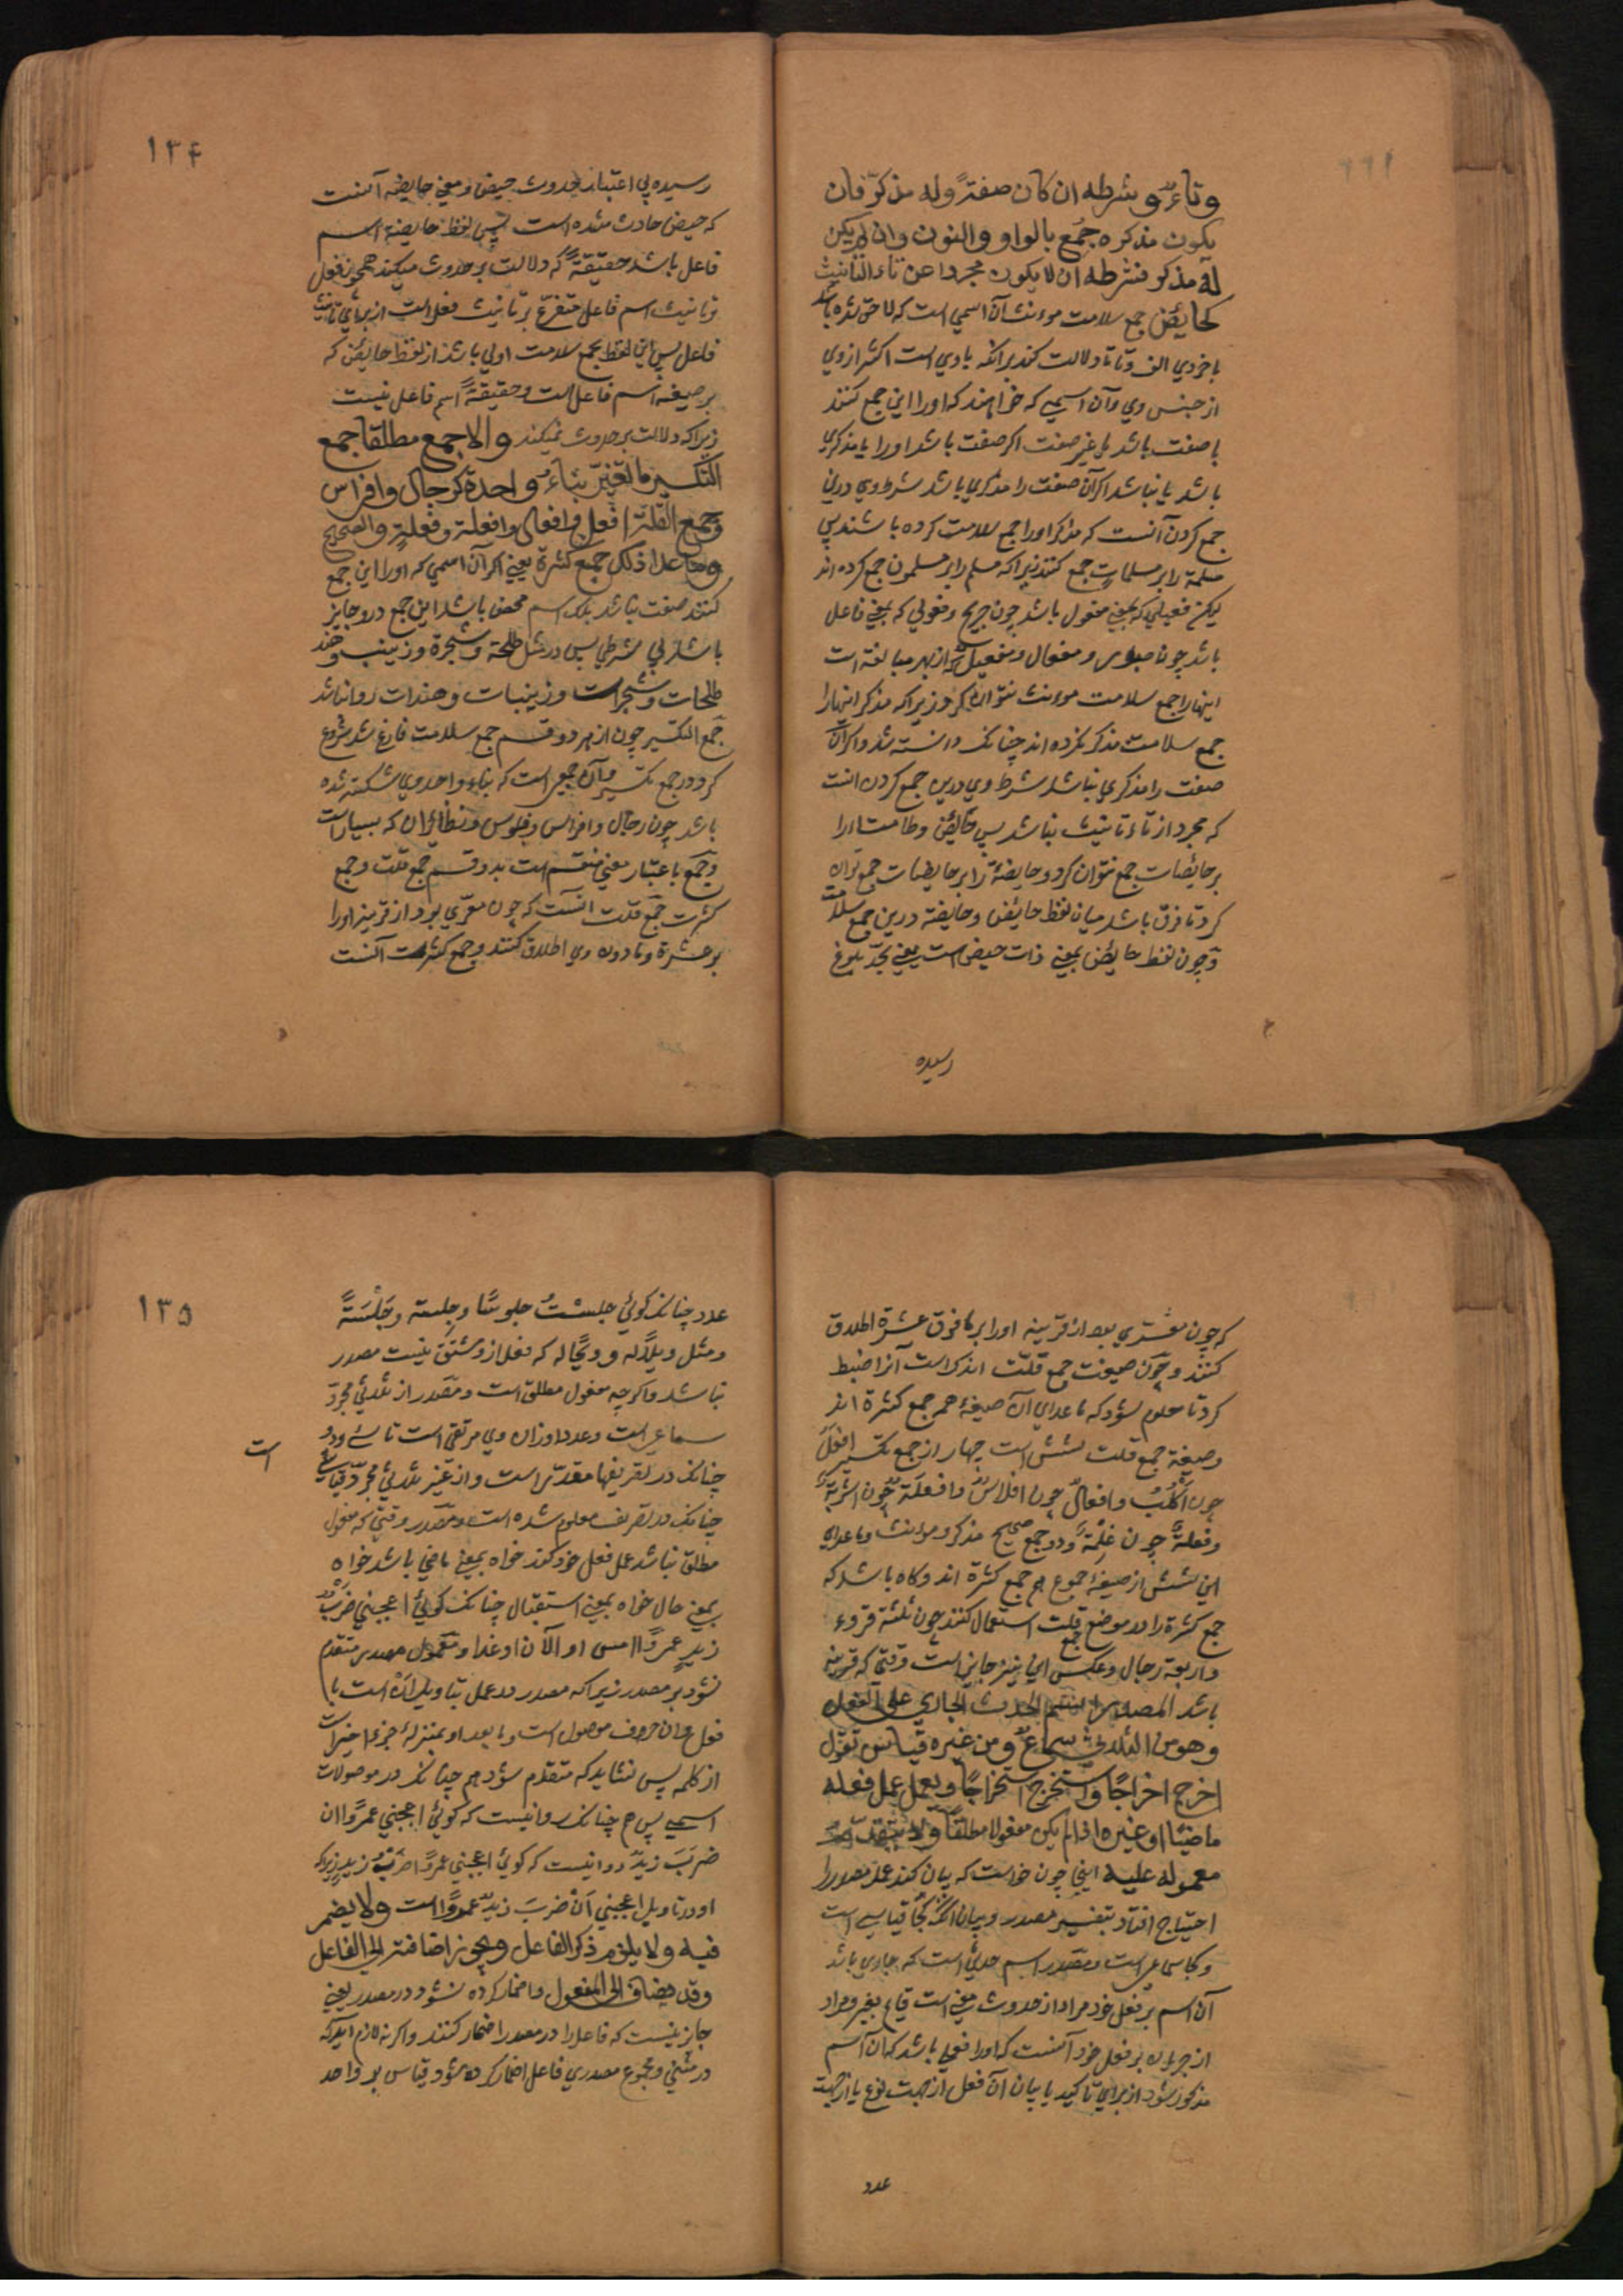 وتاء و شرطه ان كان صفة وله مذكر فان
يكون مذكره جمع بالواو والنون وان لم يكن
له مذكر فشرطه ان لا يكون مجردا عن تاء التانيث
كحايض جمع سلامت مونث آن اسمي است كه لاحق شده باشد
باخروي الف و تا تا دلالت كند برانكه با وي است اكثر از وي
از جنس وي و آن اسمي كه خواهند كه اورا اين جمع كنند
يا صفت باشد يا غير صفت اكر صفت باشد اورا يا مذكري
باشد يا نباشد اكر آن صفت را مذكري باشد شرط وي درين
جمع كردن آنست كه مذكر اورا جمع سلامت كرده باشند پس
مسلمة را بر مسلمات جمع كنند زيراكه مسلم را بر مسلمون جمع كرده اند
ليكن فعيلي كه بمعني مفعول باشد چون جريح و فعولي كه بمعني فاعل
باشد چون صبور و مفعال و مفعيل كه از بهر مبالغه است
اينها را جمع سلامت مونث نتوان كرد زيراكه مذكر اينها را
جمع سلامت مذكر نكرده اند چنانكه دانسته شد و اكر آن
صفت را مذكري نباشد شرط وي درين جمع كردن انست
كه مجرد از تاء تانيث نباشد پس حائض و طامث را
بر حائضات جمع نتوان كرد و حايضة را بر حايضات جمع توان
كرد تا فرق باشد ميان لفظ حائض و حايضة درين جمع سلامت
و چون لفظ حايض بمعني ذات حيض است يعني بحد بلوغ
رسيده
١٣۴
رسيده بي اعتبار حدوث حيض و معني حايضه آنست
كه حيض حادث شده است پس لفظ حايضه اسم
فاعل باشد حقيقة كه دلالت بر حدوث ميكند همچون فعل
و تانيث اسم فاعل متفرع بر تانيث فعل است از براي تانيث
فاعل پس اين لفظ بجمع سلامت اولي باشد از لفظ حائض كه
بر صيغه اسم فاعل است و حقيقة اسم فاعل نيست
زيراكه دلالت بر حدوث نميكند والا جمع مطلقا جمع
التكسير ما تغير بناء واحدة كرجال وافراس
وجمع القلة افعل وافعال وافعلة وفعلة والصحيح
وما عدا ذلك جمع كثرة يعني اكر آن اسمي كه اورا اين جمع
كنند صفت نباشد بلكه اسم محض باشد اين جمع درو جايز
باشد بي شرطي پس در مثل طلحة و شجرة و زينب و هند
طلحات و شجرات و زينبات و هندات روا باشد
جمع التكسير چون از هر دو قسم جمع سلامت فارغ شد شروع
كرد در جمع تكسير و آن جمعي است كه بناء واحد وي شكسته شده
باشد چون رجال و افراس و فلوس و نظائر آن كه بسيار است
و جمع باعتبار معني منقسم است بدو قسم جمع قلت و جمع
كثرت جمع قلت انست كه چون معري بود از قرينه اورا
بر عشرة و ما دون وي اطلاق كنند و جمع كثرت آنست
كه چون معري بود از قرينه اورا بر ما فوق عشرة اطلاق
كنند و چون صيغت جمع قلت اندك است آنرا ضبط
كرد تا معلوم شود كه ما عداي آن صيغه همه جمع كثرة اند
و صيغة جمع قلت شش است چهار از جمع تكسير افعل
چون اكلب و افعال چون افلاس و افعلة چون اشربة
و فعلة چون غلمة و دو جمع صحيح مذكر و مونث و ما عداي
اين شش از صيغه جموع هم جمع كثرة اند و كاه باشد كه
جمع كثرة را در موضع قلت استعمال كنند چون ثلثة قروء
واربعة رجال و عكس اين نيز جايز است وقتي كه قرينه
باشد المصدر اسم الحدث الجاري علي الفعل
وهو من الثلاثي سماع ومن غيره قياس تقول
اخرج اخراجا واستخرج استخراجا ويعمل عمل فعله
ماضيا او غيره اذا لم يكن مفعولا مطلقا ولا يتقدم
معموله عليه اينجا چون خواست كه بيان كند عمل مصدر را
احتياج افتاد بتفسير مصدر و بيان انكه كجا قياسي است
و كجا سماعي است و مصدر اسم حدثي است كه جاري باشد
آن اسم بر فعل خود مراد از حدوث معني است قايم بغير و مراد
از جريان بر فعل خود آنست كه اورا فعلي باشد كه آن اسم
مذكور شود از براي تاكيد يا بيان آن فعل از جهت نوع يا از جهت
عدد
١٣۵
عدد چنانكه كوئي جلست جلوسا و جلسة و جلسة
و مثل ويلا له و ويحا له كه فعل ازو مشتق نيست مصدر
نباشد و اكرچه مفعول مطلق است و مصدر از ثلاثي مجرد
سماعي است و عدد اوزان وي مرتقي است تا سي و دو
چنانكه در تصريفها مقدر است و از غير ثلاثي مجرد قياسي
است
چنانكه در تصريف معلوم شده است و مصدر وقتي كه مفعول
مطلق نباشد عمل فعل خود كند خواه بمعني ماضي باشد خواه
بمعني حال خواه بمعني استقبال چنانكه كوئي اعجبني ضرب
زيد عمرا امس او الآن او غدا و معمول مصدر متقدم
نشود بر مصدر زيراكه مصدر در عمل بتاويل ان است با
فعل و ان حروف موصول است و ما بعد او بمنزله جزء اخير است
از كلمه پس نشايد كه متقدم شود هم چنانكه در موصولات
اسمي پس هم چنانكه روا نيست كه كوئي اعجبني عمرا ان
ضرب زيد روا نيست كه كوئي اعجبني عمرا ضرب زيد زيراكه
او در تاويل اعجبني ان ضرب زيد عمروا است ولا يضمر
فيه ولا يلزم ذكر الفاعل ويجوز اضافته الي الفاعل
وقد يضاف الي المفعول و اضمار كرده نشود در مصدر يعني
جايز نيست كه فاعل را در مصدر اضمار كنند و اكر نه لازم آيد كه
در مثني و مجموع مصدري فاعل اضمار كرده شود قياس بر واحد